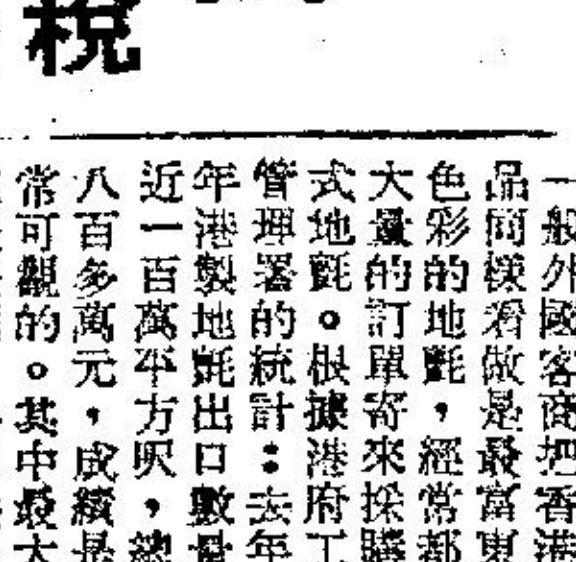 稅
一般外國客商把香港
品同樣看做是最富東
色彩的地氈，經常都
大量的訂單寄來採購
式地氈。根據港府工
管理署的統計：去年
年港製地氈出口數量
近一百萬平方呎，總
八百多萬元，成績是
常可觀的。其中最大